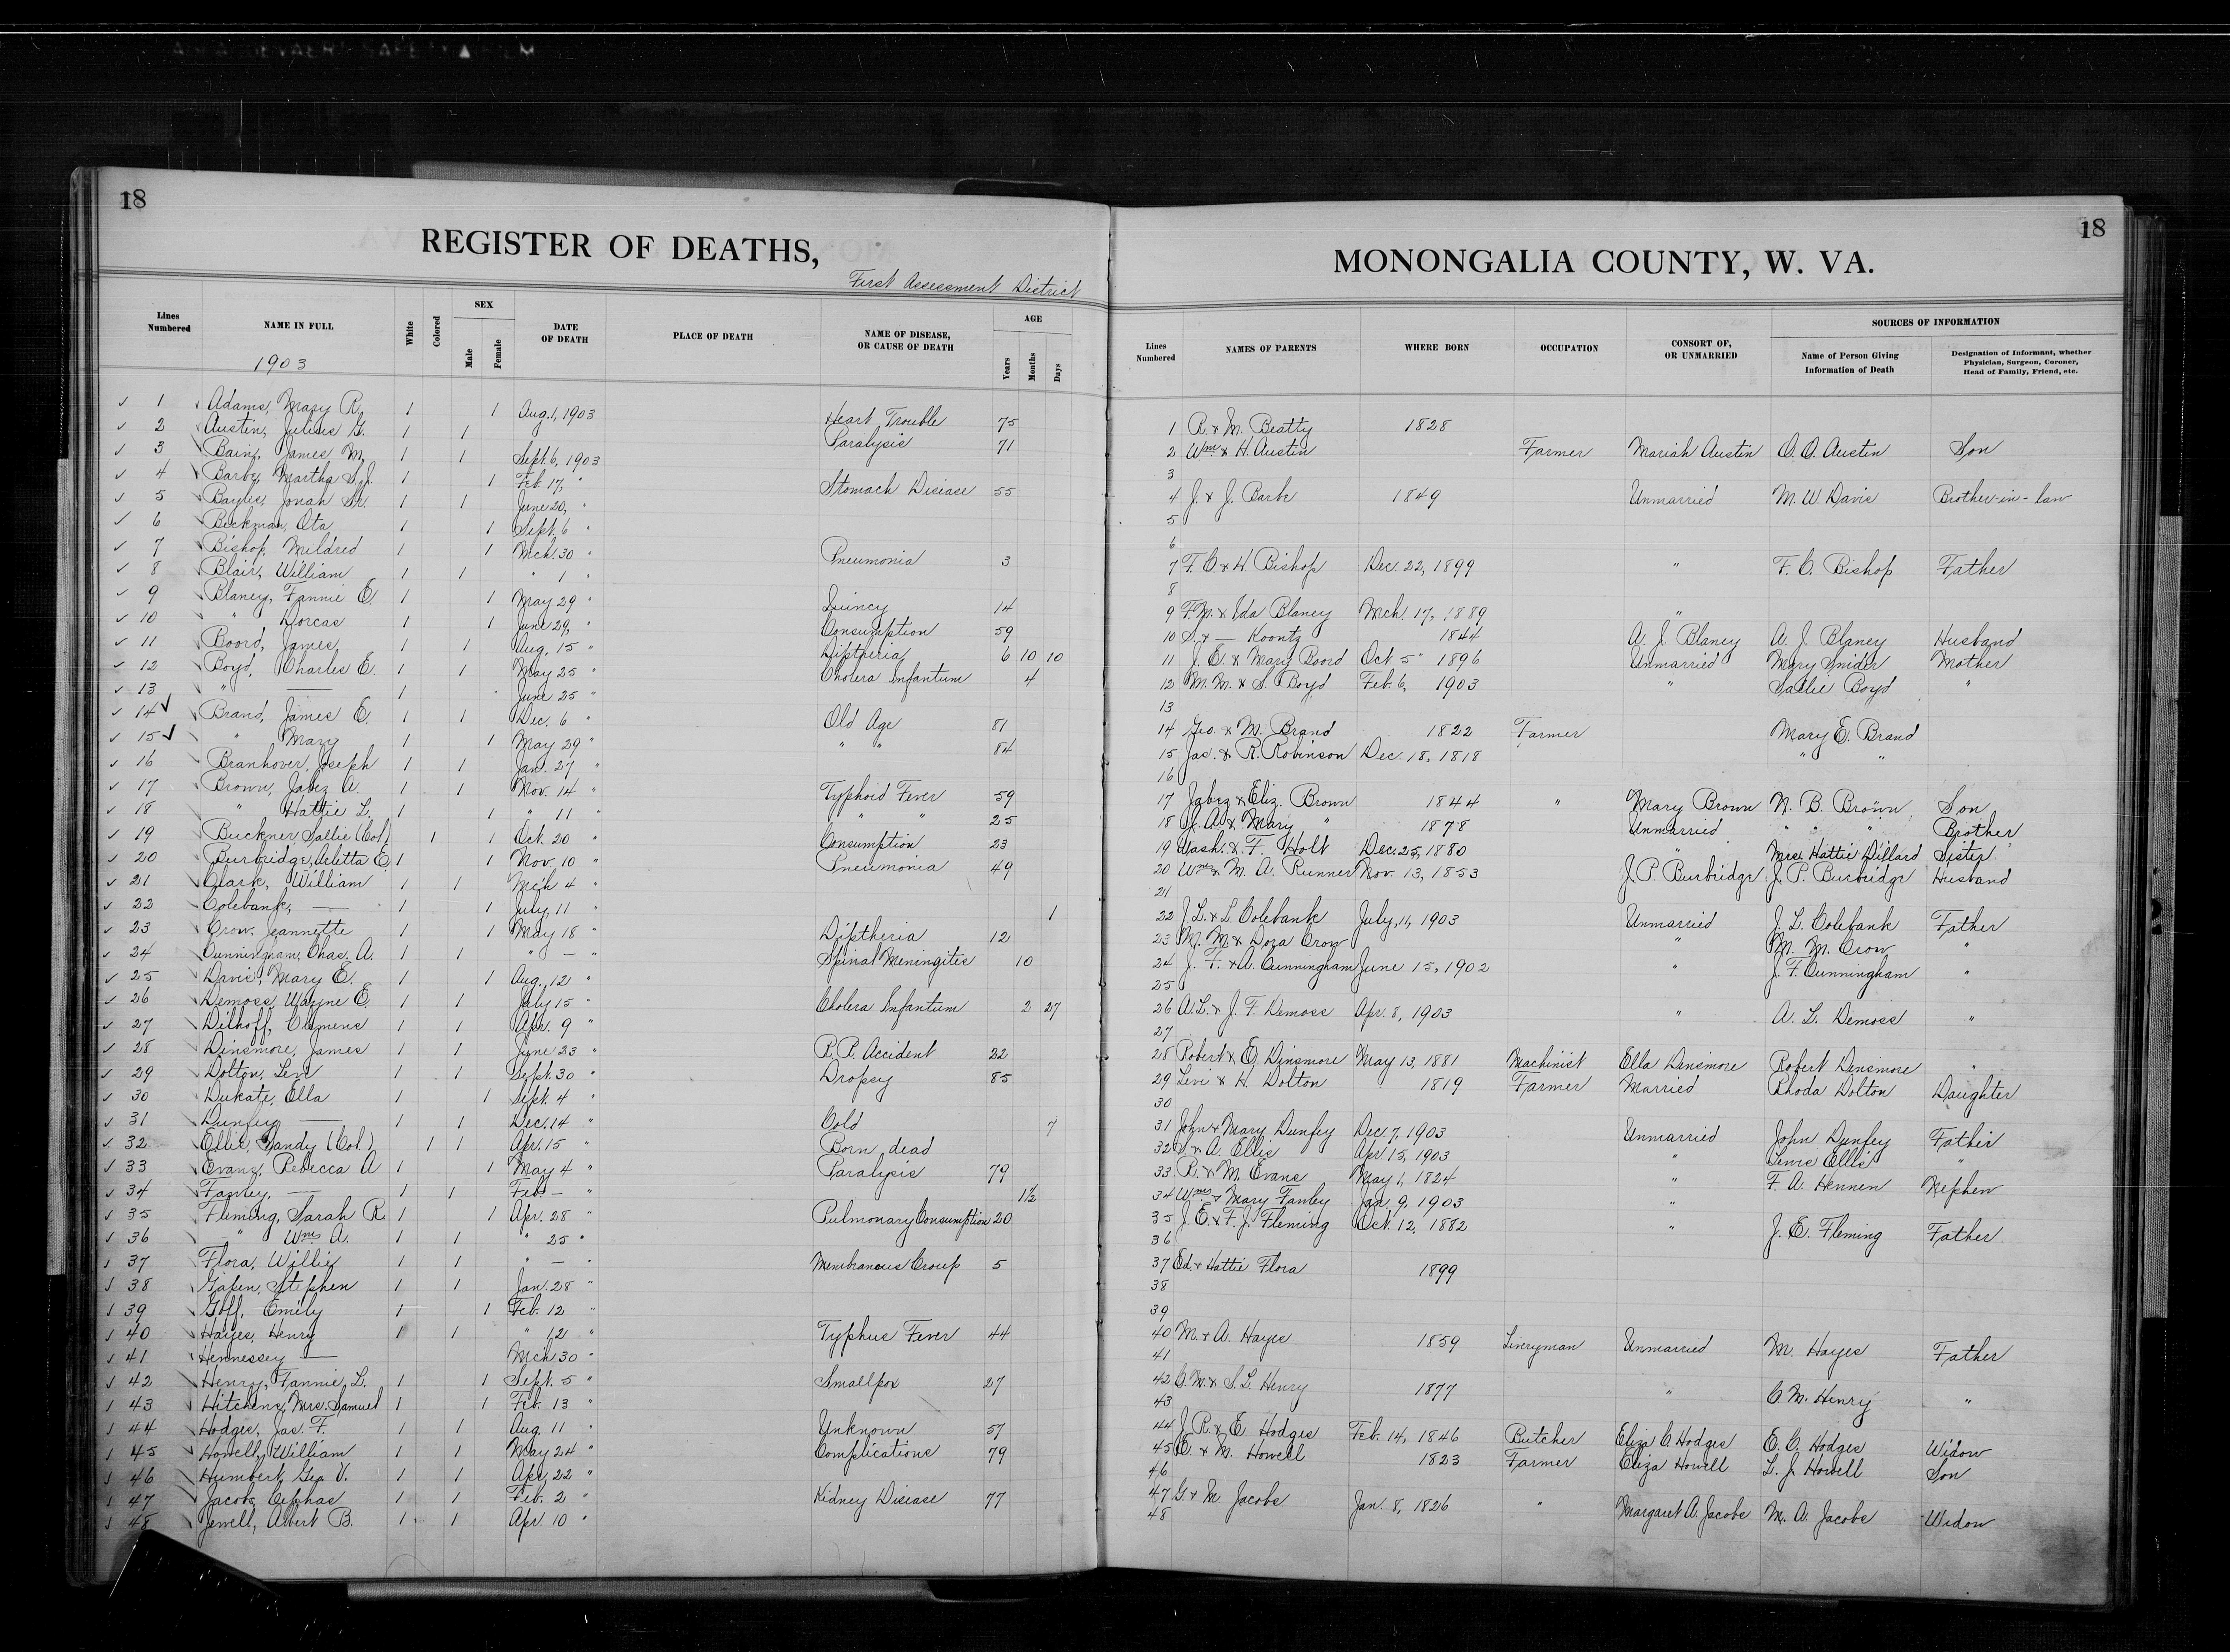 18
REGISTER OF DEATHS,
First Assessment District
Lines Numbered | NAME IN FULL | White | Colored | SEX Male | Female | DATE OF DEATH | PLACE OF DEATH | NAME OF DISEASE, OR CAUSE OF DEATH | AGE Years | Months | Days
1903
1 Adams, Mary R. 1 1 Aug. 1, 1903 Heart Trouble 75
2 Austin, Julius G. 1 1 Paralysis 71
3 Bain, James M. 1 1 Sept. 6, 1903
4 Barbe, Martha S. J. 1 1 Feb. 17, " Stomach Disease 55
5 Bayles, Jonah Sr. 1 1 June 20, "
6 Beckman, Ota 1 1 Sept. 6 "
7 Bishop, Mildred 1 1 Mch. 30 " Pneumonia 3
8 Blair, William 1 1 " 1 "
9 Blaney, Fannie E. 1 1 May 29 " Quincy 14
10 " Dorcas 1 1 June 29, " Consumption 59
11 Boord, James 1 1 Aug. 15 " Diptheria 6 10 10
12 Boyd, Charles E. 1 1 May 25 " Cholera Infantum 4
13 " — 1 June 25 "
14 Brand, James E. 1 1 Dec. 6 " Old Age 81
15 " Mary 1 1 May 29 " " " 84
16 Branhover, Joseph 1 1 Jan. 27 "
17 Brown, Jabez A. 1 1 Nov. 14 " Typhoid Fever 59
18 " Hattie L. 1 1 " 11 " " " 25
19 Buckner, Sallie (Col) 1 1 Oct. 20 " Consumption 23
20 Burbridge, Arletta E. 1 1 Nov. 10 " Pneumonia 49
21 Clark, William 1 1 Mch 4 "
22 Colebank, — 1 1 July, 11 " 1
23 Crow, Jeannette 1 1 May 18 " Diptheria 12
24 Cunningham, Chas. A. 1 1 " — " Spinal Meningites 10
25 Davis, Mary E. 1 1 Aug., 12 "
26 Demoss, Wayne E. 1 1 July 15 " Cholera Infantum 2 27
27 Dilhoff, Clemens 1 1 Apr. 9 "
28 Dinsmore, James 1 1 June 23 " R. R. Accident 22
29 Dolton, Levi 1 1 Sept. 30 " Dropsy 85
30 Dukate, Ella 1 1 Sept. 4 "
31 Dunfey — 1 1 Dec. 14 " Cold 7
32 Ellis, Gandy (Col) 1 1 Apr. 15 " Born dead
33 Evans, Rebecca A 1 1 May 4 " Paralysis 79
34 Fanley, — 1 1 Feb — " 1½
35 Fleming, Sarah R. 1 1 Apr. 28 " Pulmonary Consumption 20
36 " Wm. A. 1 1 " 25 "
37 Flora, Willie 1 1 " — " Membraneus Croup 5
38 Gapen, Stephen 1 1 Jan. 28 "
39 Goff, Emily 1 1 Feb. 12 "
40 Hayes, Henry 1 1 " 12 " Typhus Fever 44
41 Hennessey — Mch 30 "
42 Henry, Fannie L. 1 1 Sept. 5 " Smallpox 27
43 Hitchens, Mrs. Samuel 1 1 Feb. 13 "
44 Hodges, Jas. F. 1 1 Aug. 11 " Unknown 57
45 Howell, William 1 1 May 24 " Complications 79
46 Humbert, Geo. V. 1 1 Apr. 22 "
47 Jacobs, Cephas 1 1 Feb. 2 " Kidney Disease 77
48 Jewell, Albert B. 1 1 Apr. 10 "
18
MONONGALIA COUNTY, W. VA.
Lines Numbered | NAMES OF PARENTS | WHERE BORN | OCCUPATION | CONSORT OF, OR UNMARRIED | SOURCES OF INFORMATION
Name of Person Giving Information of Death | Designation of Informant, whether Physician, Surgeon, Coroner, Head of Family, Friend, etc.
1 R. & M. Beatty 1828
2 Wm. & H. Austin Farmer Mariah Austin O. O. Austin Son
3
4 J. & J. Barbe 1849 Unmarried M. W. Davis Brother-in-law
5
6
7 F. C. & W Bishop Dec. 22, 1899 " F. C. Bishop Father
8
9 F. M. & Ida Blaney Mch. 17, 1889 "
10 S. & — Koontz 1844 A. J. Blaney A. J. Blaney Husband
11 J. E. & Mary Boord Oct. 5 1896 Unmarried Mary Snider Mother
12 M. M. & S. Boyd Feb. 6, 1903 " Sallie Boyd "
13
14 Geo. & M. Brand 1822 Farmer Mary E. Brand
15 Jas. & R. Robinson Dec. 18, 1818 " "
16
17 Jabez & Eliz. Brown 1844 " Mary Brown N. B. Brown Son
18 J. A. & Mary " 1878 Unmarried " " " Brother
19 Wash. & F. Holt Dec. 25, 1880 " Mrs. Hattie Dillard Sister
20 Wm. & M. A. Runner Nov. 13, 1853 J. P. Burbridge J. P. Burbridge Husband
21
22 J. L. & L. Colebank July, 11, 1903 Unmarried J. L. Colebank Father
23 M. M. & Dora Crow " M. M. Crow "
24 J. F. & A. Cunningham June 15, 1902 " J. F. Cunningham "
25
26 A. L. & J. F. Demoss Apr. 8, 1903 " A. L. Demoss "
27
28 Robert & E. Dinsmore May 13, 1881 Machinist Ella Dinsmore Robert Dinsmore "
29 Levi & H. Dolton 1819 Farmer Married Rhoda Dolton Daughter
30
31 John & Mary Dunfey Dec. 7, 1903 Unmarried John Dunfey Father
32 & A. Ellis Apr. 15, 1903 " Ellis "
33 R. & M. Evans May 1, 1824 " F. A. Hennen Nephew
34 Wm. & Mary Fanley Jan. 9, 1903 "
35 J. E. & F. J. Fleming Oct. 12, 1882 " J. E. Fleming Father
36
37 Ed. & Hattie Flora 1899
38
39
40 M. & A. Hayes 1859 Liveryman Unmarried M. Hayes Father
41
42 C. M. & S. L. Henry 1877 " C. M. Henry "
43
44 J. R. & E. Hodges Feb. 14, 1846 Butcher Eliza C. Hodges E. C. Hodges Widow
45 & M. Howell 1823 Farmer Eliza Howell L. J. Howell Son
46
47 G. & M. Jacobs Jan. 8, 1826 " Margaret A. Jacobs M. A. Jacobs Widow
48